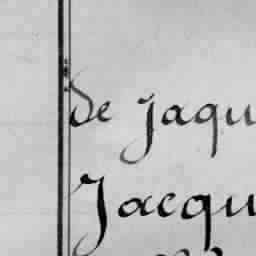 de jaqu
Jacqu